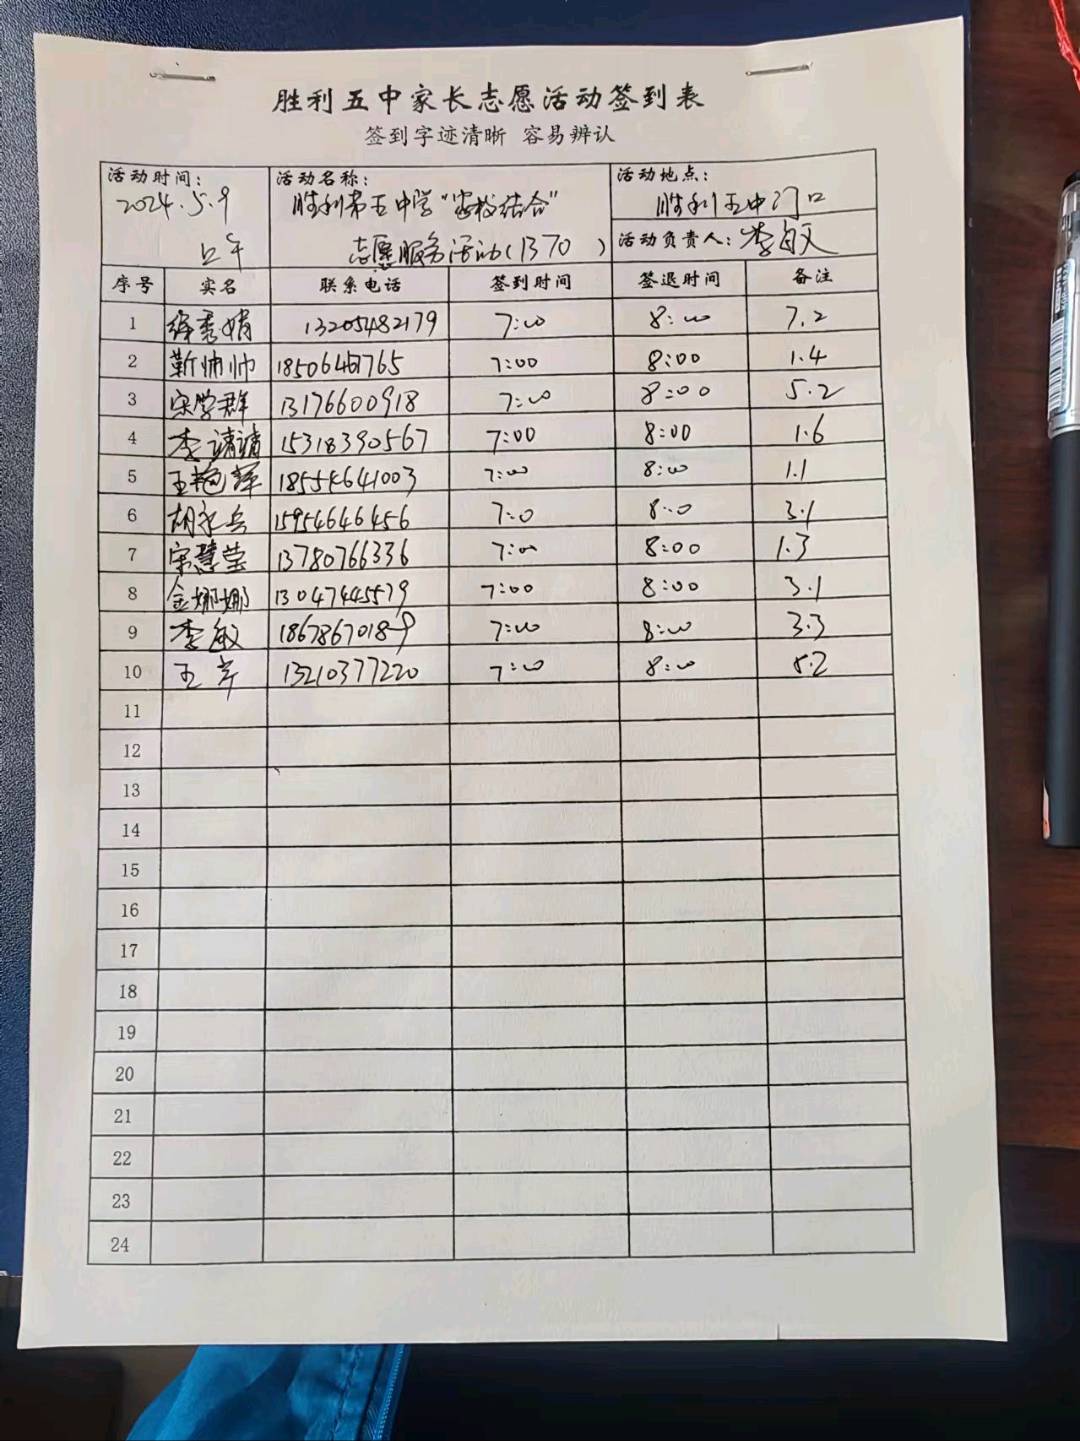 胜利五中家长志愿活动签到表
签到字迹清晰 容易辨认
活动时间: 活动名称: 活动地点:
2024.5.9 胜利第五中学"家校结合" 胜利五中门口
上午 志愿服务活动(1370) 活动负责人: 李敏
序号 实名 联系电话 签到时间 签退时间 备注
1 13205482179 7:00 8:00 7.2
2 靳帅帅 7:00 8:00 1.4
3 宋学群 13176600918 7:00 8:00 5.2
4 李靖靖 15318390567 7:00 8:00 1.6
5 王艳辉 18554641003 7:00 8:00 1.1
6 胡永兵 15954646456 7:0 8:0 3.1
7 宋慧莹 13780766336 7:00 8:00 1.3
8 金娜娜 13047445579 7:00 8:00 3.1
9 李敏 18678670189 7:00 8:00 3.3
10 王芹 13210377220 7:00 8:00 5.2
11
12
13
14
15
16
17
18
19
20
21
22
23
24